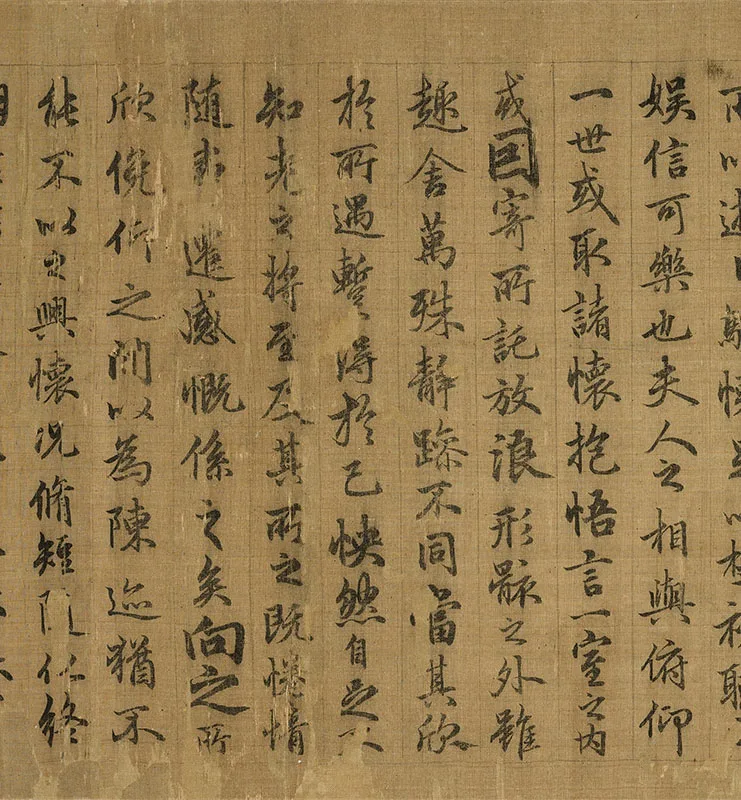 以遊目騁懷足以極視聽
娛信可樂也夫人之相與俯仰
一世或取諸懷抱悟言一室之內
或因寄所託放浪形骸之外雖
趣舍萬殊靜躁不同當其欣
於所遇蹔得於己怏然自足不
知老之將至及其所之既惓情
隨事遷感慨係之矣向之所
欣俛仰之閒以為陳迹猶不
能不以之興懷況脩短隨化終